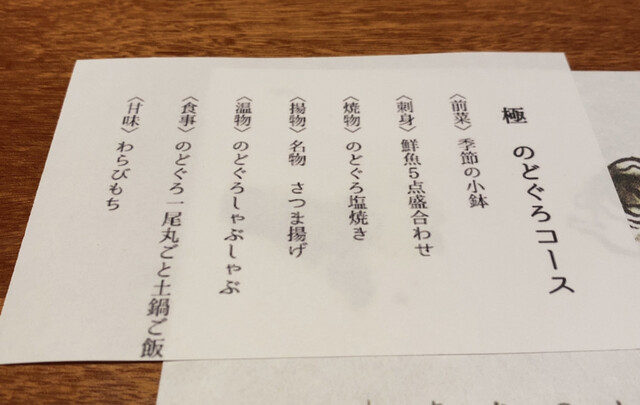 極 のどぐろコース
〈前菜〉季節の小鉢
〈刺身〉鮮魚5点盛合わせ
〈焼物〉のどぐろ塩焼き
〈揚物〉名物 さつま揚げ
〈温物〉のどぐろしゃぶしゃぶ
〈食事〉のどぐろ一尾丸ごと土鍋ご飯
〈甘味〉わらびもち